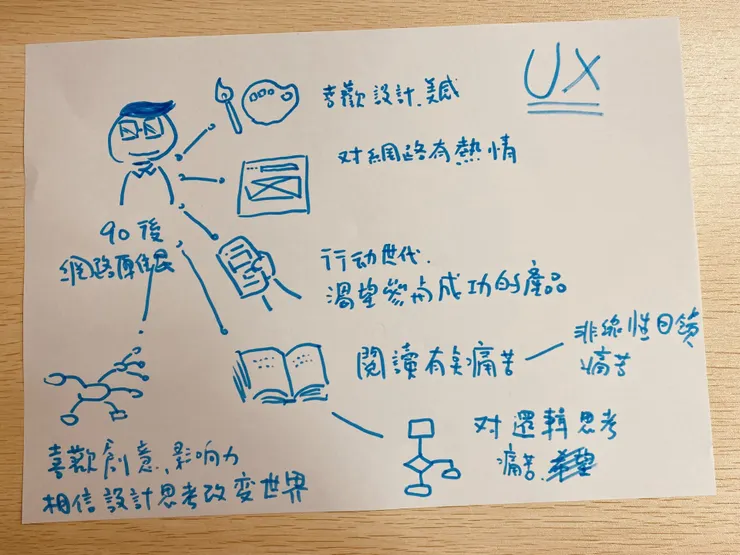 UX
喜歡設計、美感
对網路有熱情
90後
網路原住民
行动世代.
渴望參与成功的產品
閱讀有点痛苦
非線性目錄
痛苦
对邏輯思考
痛苦.
喜歡創意、影响力
相信設計思考改变世界